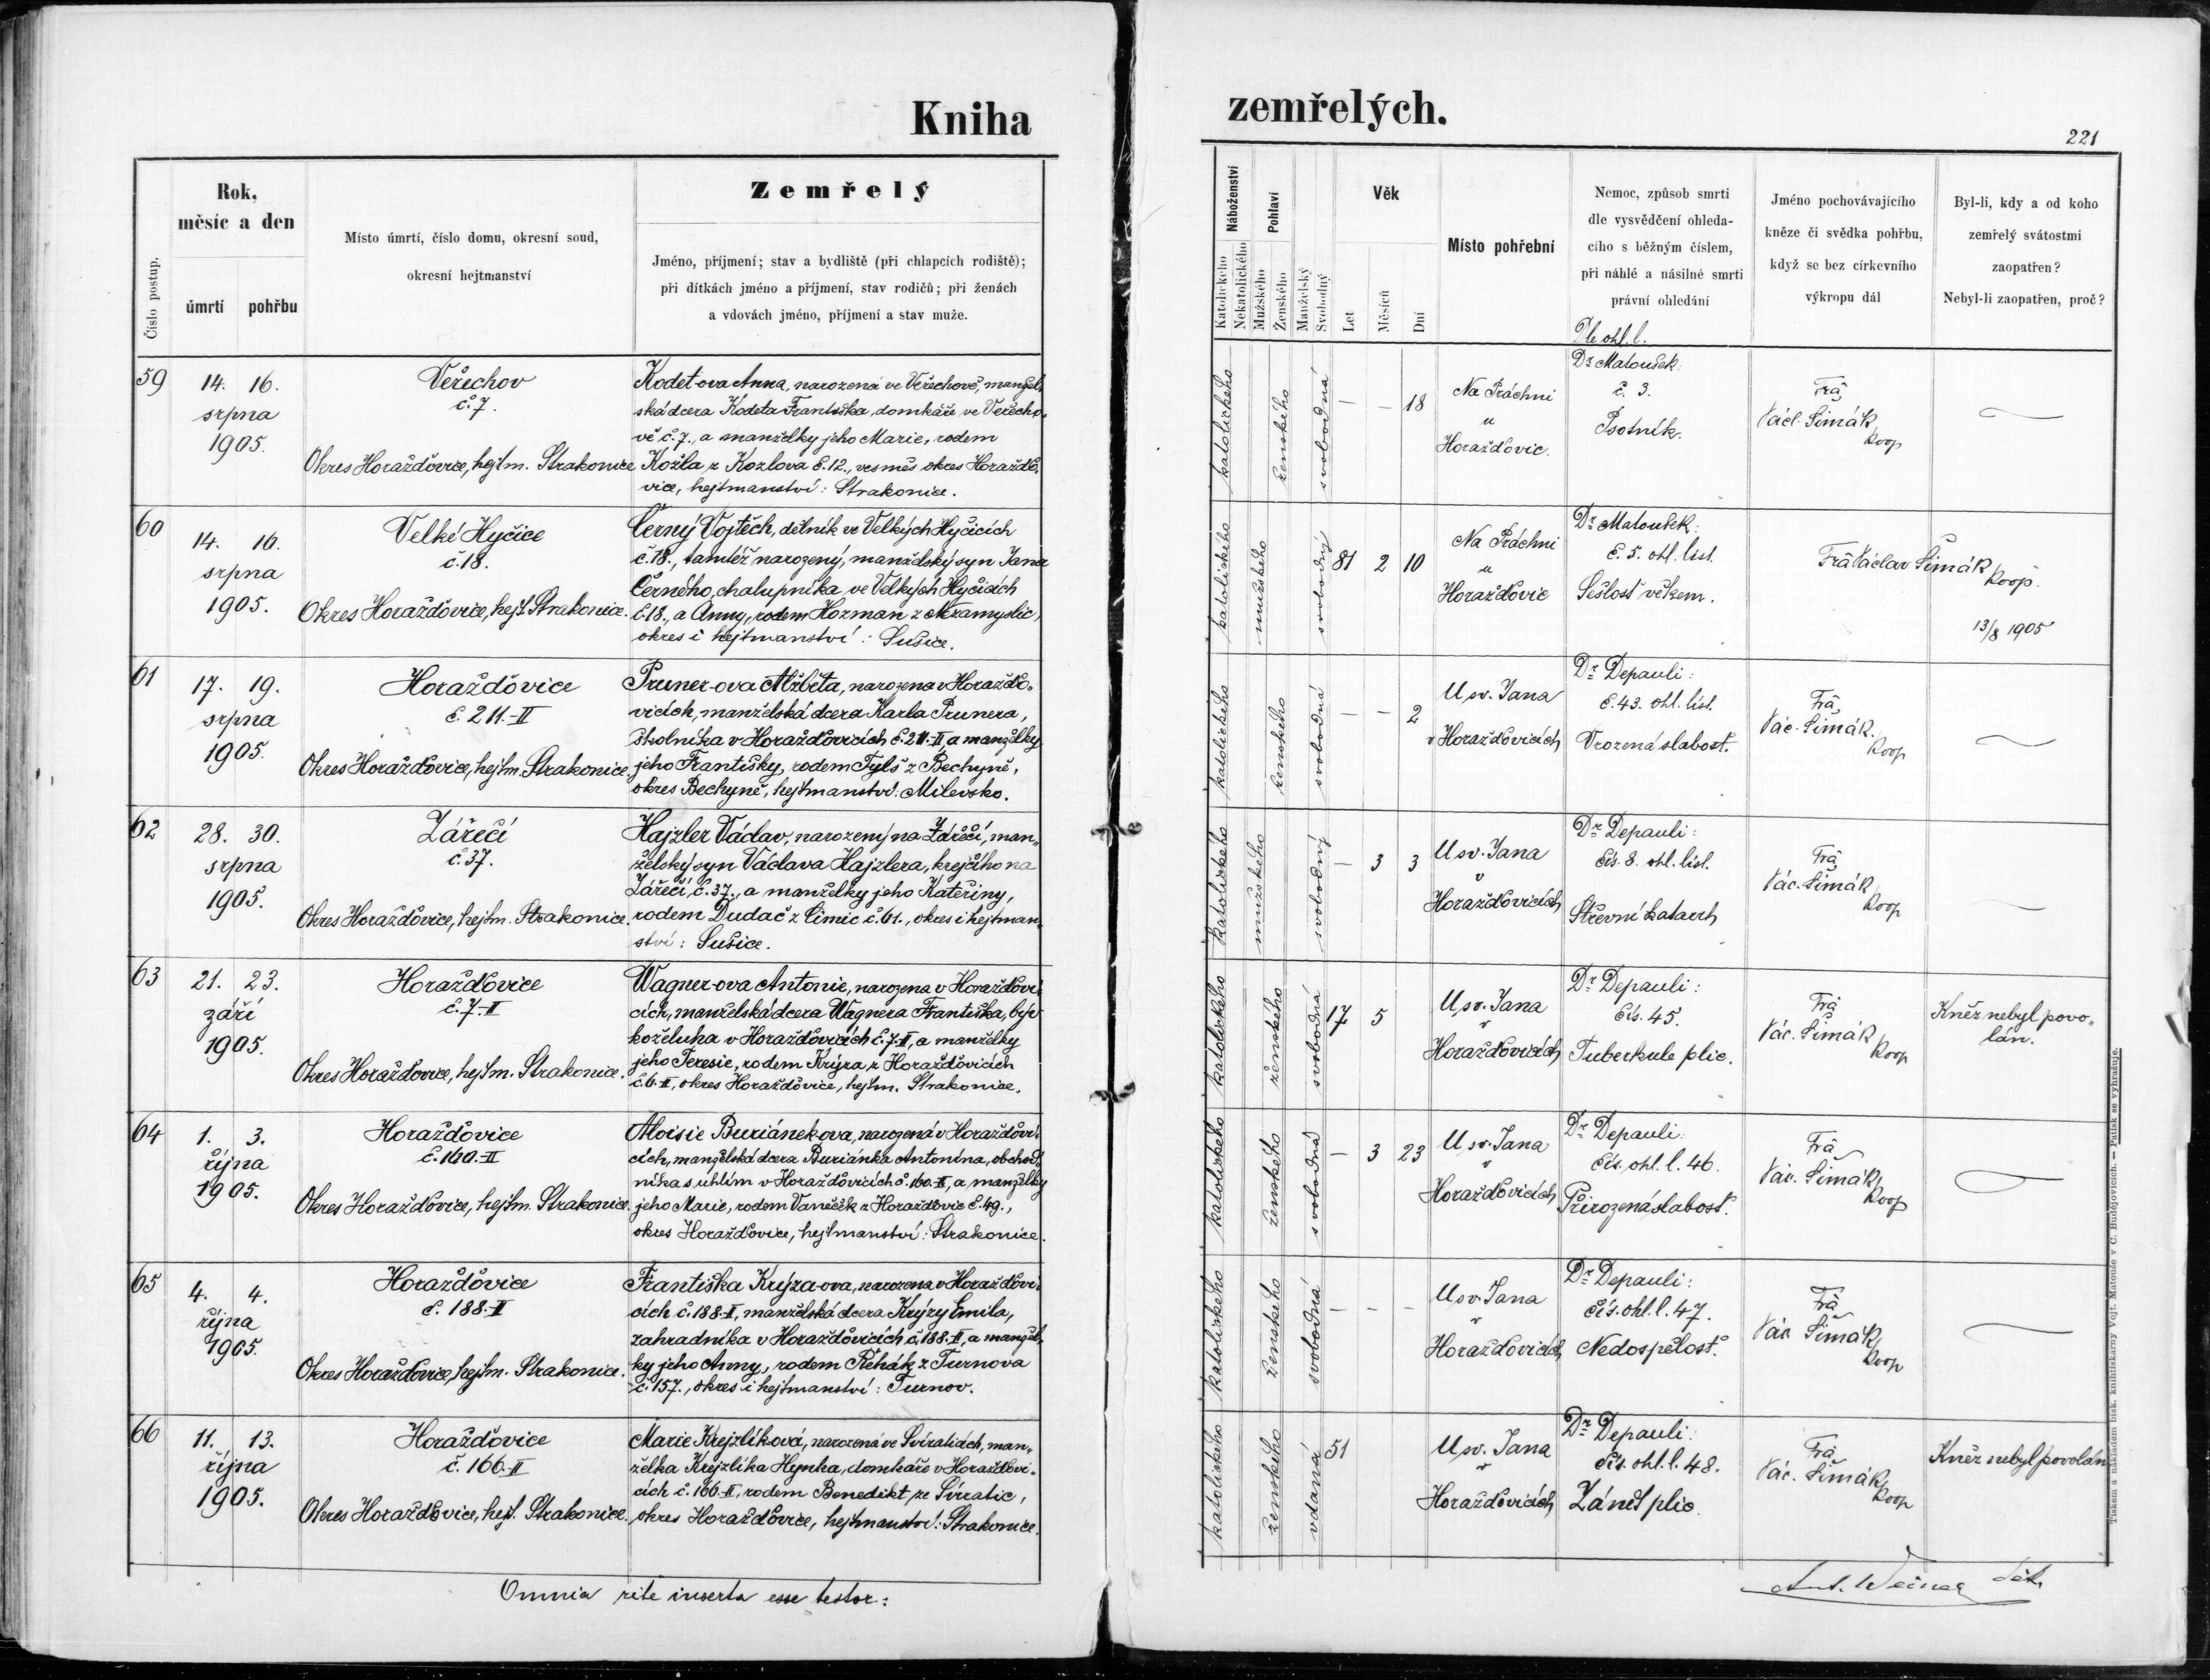 Kniha
Číslo postup.
Rok,
měsíc a den
úmrtí pohřbu
Místo úmrtí, číslo domu, okresní soud,
okresní hejtmanství
Zemřelý
Jméno, příjmení; stav a bydliště (při chlapcích rodiště);
při dítkách jméno a příjmení, stav rodičů; při ženách
a vdovách jméno, příjmení a stav muže.
59
14. 16.
srpna
1905.
Veřechov
č. 7.
Okres Horažďovice, hejtm. Strakonice
Kodet-ova Anna, narozená ve Veřechově, manžel-
ská dcera Kodeta Františka, domkáře ve Veřecho-
vě č. 7., a manželky jeho Marie, rodem
Kožla z Kozlova č. 12., vesměs okres Horažďo-
vice, hejtmanství: Strakonice.
60
14. 16.
srpna
1905.
Velké Hyčice
č. 18.
Okres Horažďovice, hejt. Strakonice.
Černý Vojtěch, dělník ve Velkých Hyčicích
č. 18., tamtéž narozený, manželský syn Jana
Černého, chalupníka ve Velkých Hyčicích
č. 18., a Anny, rodem Hozman z Nezamyslic,
okres i hejtmanství: Sušice.
61
17. 19.
srpna
1905.
Horažďovice
č. 211.-II
Okres Horažďovice, hejtm. Strakonice.
Pruner-ova Alžběta, narozena v Horažďo-
vicích, manželská dcera Karla Prunera,
školníka v Horažďovicích č. 211.-II, a manželky
jeho Františky, rodem Tylš z Bechyně,
okres Bechyně, hejtmanstvi: Milevsko.
62
28. 30.
srpna
1905.
Zářečí
č. 37.
Okres Horažďovice, hejtm. Strakonice.
Hajzler Václav, narozený na Zářečí, man-
želský syn Václava Hajzlera, krejčího na
Zářečí č. 37., a manželky jeho Kateřiny,
rodem Dudač z Čimic č. 61., okres i hejtman-
ství: Sušice.
63
21. 23.
září
1905.
Horažďovice
č. 7.-II
Okres Horažďovice, hejtm. Strakonice.
Wagner-ova Antonie, narozena v Horažďovi-
cích, manželská dcera Wagnera Františka, býv.
koželuha v Horažďovicích č. 7.-II, a manželky
jeho Teresie, rodem Krýza z Horažďovicích
č. 6.-II, okres Horažďovice, hejtm. Strakonice.
64
1. 3.
října
1905.
Horažďovice
č. 160.-II
Okres Horažďovice, hejtm. Strakonice.
Aloisie Buriánekova, narozená v Horažďovi-
cích, manželská dcera Buriánka Antonína, obchod-
níka s uhlím v Horažďovicích č. 160.-II, a manželky
jeho Marie, rodem Vaněček z Horažďovic č. 49.,
okres Horažďovice, hejtmanství: Strakonice.
65
4. 4.
října
1905.
Horažďovice
č. 188.-II
Okres Horažďovice, hejtm. Strakonice.
Františka Krýza-ova, narozena v Horažďovi-
cích č. 188-II, manželská dcera Krýzy Emila,
zahradníka v Horažďovicích č. 188.-II, a manžel-
ky jeho Anny, rodem Řehák z Turnova
č. 157., okres i hejtmanství: Turnov.
66
11. 13.
října
1905.
Horažďovice
č. 166.-II
Okres Horažďovice, hejt. Strakonice.
Marie Krejzlíková, narozená ve Svíraticích, man-
želka Krejzlíka Hynka, domkáře v Horažďovi-
cích č. 166-II, rodem Benedikt, ze Svíratic,
okres Horažďovice, hejtmanství: Strakonice.
Omnia rite inserta esse testor:
zemřelých.
221
Náboženství
Katolického
Nekatolického
Pohlaví
Mužského
Ženského
Manželský
Svobodný
Věk
Let
Měsíců
Dní
Místo pohřební
Nemoc, způsob smrti
dle vysvědčení ohleda-
cího s běžným číslem,
při náhlé a násilné smrti
právní ohledání
Jméno pochovávajícího
kněze či svědka pohřbu,
když se bez církevního
výkropu dál
Byl-li, kdy a od koho
zemřelý svátostmi
zaopatřen?
Nebyl-li zaopatřen, proč?
Dle ohl. l.
katolického
ženského
svobodná
— — 18
Na Práchni
u
Horažďovic.
Dr Matoušek:
č. 3.
Psotník.
Frà
Václ. Šimák
koop
—
katolického
mužského
svobodný
81 2 10
Na Práchni
u
Horažďovic
Dr Matoušek:
č. 5. ohl. list.
Sešlost věkem.
Frà Václav Šimák
koop.
13/8 1905
katolického
ženského
svobodná
— — 2
U sv. Jana
v Horažďovicích
Dr Depauli:
č. 43. ohl. list.
Vrozená slabost.
Frà
Vác. Šimák.
koop
—
katolického
mužského
svobodný
— 3 3
U sv. Jana
v
Horažďovicích
Dr Depauli:
čís. 8. ohl. list.
Střevní katarrh
Frà
Vác. Šimák
koop
—
katolického
ženského
svobodná
17 5
U sv. Jana
v
Horažďovicích
Dr Depauli:
čís. 45.
Tuberkule plic.
Frà
Vác. Šimák
koop
Kněz nebyl povo-
lán.
katolického
ženského
svobodná
— 3 23
U sv. Jana
v
Horažďovicích
Dr Depauli:
čís. ohl. l. 46.
Přirozená slabost.
Frà
Vác. Šimák,
koop
—
katolického
ženského
svobodná
— — —
U sv. Jana
v
Horažďovicích
Dr Depauli:
čís. ohl. l. 47.
Nedospělost.
Frà
Vác Šimák,
koop
—
katolického
ženského
vdaná
51
U sv. Jana
v
Horažďovicích
Dr Depauli:
čís. ohl. l. 48.
Zánět plic.
Frà
Vác. Šimák,
koop
Kněz nebyl povolán
Tiskem a nákladem bisk. knihtiskárny Vojt. Matouše v C. Budějovicích. — Patisk se vyhražuje.